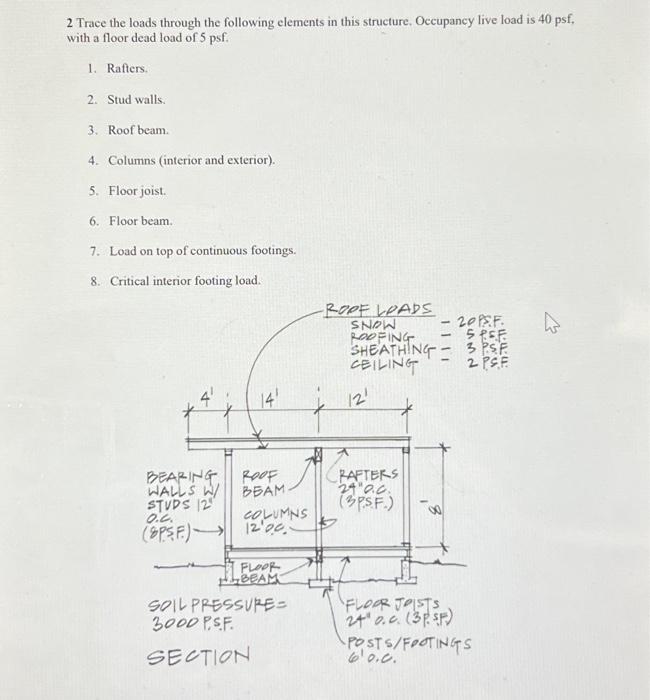 2 Trace the loads through the following elements in this structure. Occupancy live load is 40 psf,
with a floor dead load of 5 psf.
1. Rafters.
2. Stud walls.
3. Roof beam.
4. Columns (interior and exterior).
5. Floor joist.
6. Floor beam.
7. Load on top of continuous footings.
8. Critical interior footing load.
ROOF LOADS
SNOW - 20 P.S.F.
ROOFING - 5 P.S.F.
SHEATHING - 3 P.S.F.
CEILING - 2 P.S.F.
4' 14' 12'
BEARING
WALLS W/
STUDS 12"
O.C.
(8 P.S.F.)
ROOF
BEAM
COLUMNS
12' O.C.
RAFTERS
24" O.C.
(3 P.S.F.)
8'
FLOOR
BEAM
SOIL PRESSURE =
3000 P.S.F.
SECTION
FLOOR JOISTS
24" O.C. (3 P.S.F.)
POSTS/FOOTINGS
6' O.C.